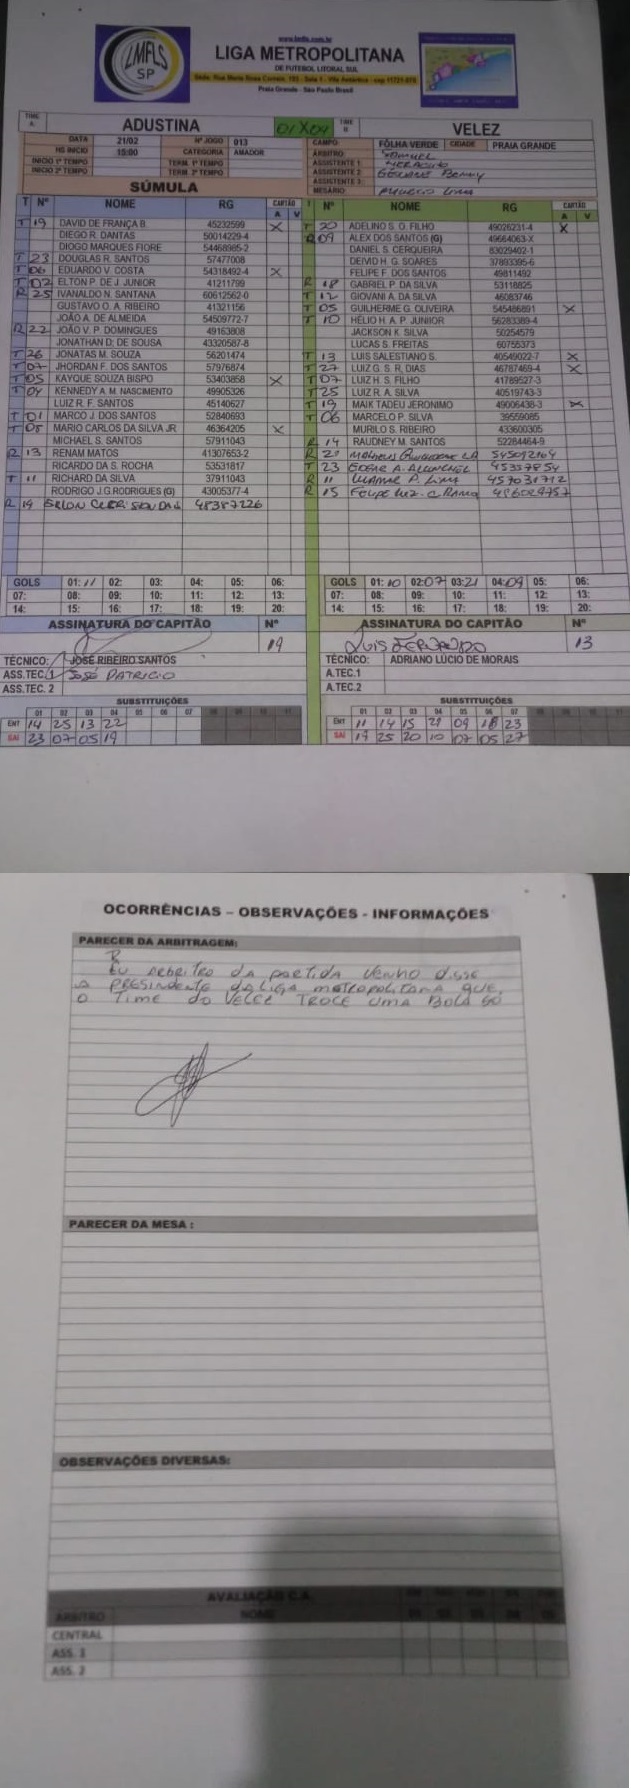 LMFLS
SP
www.lmfls.com.br
LIGA METROPOLITANA
DE FUTEBOL LITORAL SUL
Praia Grande - São Paulo Brasil
TIME A ADUSTINA 01 X 04 TIME B VELEZ
DATA 21/02 Nº JOGO 013 CAMPO: FOLHA VERDE CIDADE PRAIA GRANDE
HS INICIO 15:00 CATEGORIA AMADOR ARBITRO:
INICIO 1º TEMPO TERM. 1º TEMPO ASSISTENTE 1:
INICIO 2º TEMPO TERM. 2º TEMPO ASSISTENTE 2:
SÚMULA MESÁRIO
T Nº NOME RG CARTÃO A V T Nº NOME RG CARTÃO A V
T 19 DAVID DE FRANÇA B. 45232599 X T 20 ADELINO S. O. FILHO 49026231-4 X
DIEGO R. DANTAS 50014229-4 R 09 ALEX DOS SANTOS (G) 49664063-X
DIOGO MARQUES FIORE 54468985-2 DANIEL S. CERQUEIRA 83029402-1
T 23 DOUGLAS R. SANTOS 57477008 DEIVID H. G. SOARES 37893395-6
T 06 EDUARDO V. COSTA 54318492-4 X FELIPE F. DOS SANTOS 49811492
T 02 ELTON P. DE J. JUNIOR 41211799 R 18 GABRIEL P. DA SILVA 53118825
R 25 IVANALDO N. SANTANA 60612562-0 T 12 GIOVANI A. DA SILVA 46083746
GUSTAVO O. A. RIBEIRO 41321156 T 05 GUILHERME G. OLIVEIRA 545486891 X
JOÃO A. DE ALMEIDA 54509772-7 T 10 HÉLIO H. A. P. JUNIOR 56283389-4
R 22 JOÃO V. P. DOMINGUES 49163808 JACKSON K. SILVA 50254579
JONATHAN D. DE SOUSA 43320587-8 LUCAS S. FREITAS 60755373
T 26 JONATAS M. SOUZA 56201474 T 13 LUIS SALESTIANO S. 40549022-7 X
T 07 JHORDAN F. DOS SANTOS 57976874 T 27 LUIZ G. S. R. DIAS 46787469-4 X
T 05 KAYQUE SOUZA BISPO 53403858 X T 07 LUIZ H. S. FILHO 41789527-3
T 04 KENNEDY A. M. NASCIMENTO 49905326 T 25 LUIZ R. A. SILVA 40519743-3
LUIZ R. F. SANTOS 45140627 T 19 MAIK TADEU JERONIMO 49006438-3 X
T 01 MARCO J. DOS SANTOS 52840693 T 06 MARCELO P. SILVA 39559085
T 08 MARIO CARLOS DA SILVA JR 46364205 X MURILO S. RIBEIRO 433600305
MICHAEL S. SANTOS 57911043 R 14 RAUDNEY M. SANTOS 52284464-9
R 13 RENAM MATOS 41307653-2 R 21 MATHEUS
RICARDO DA S. ROCHA 53531817 T 23 EDGAR A.
T 11 RICHARD DA SILVA 37911043 R 11 P. LIMA 457031712
RODRIGO J.G.RODRIGUES (G) 43005377-4 R 15 FELIPE 486029757
R 14 48387226
GOLS 01: 11 02: 03: 04: 05: 06: GOLS 01: 10 02: 07 03: 21 04: 09 05: 06:
07: 08: 09: 10: 11: 12: 13: 07: 08: 09: 10: 11: 12: 13:
14: 15: 16: 17: 18: 19: 20: 14: 15: 16: 17: 18: 19: 20:
ASSINATURA DO CAPITÃO Nº ASSINATURA DO CAPITÃO Nº
19 LUIS FERNANDO 13
TÉCNICO: JOSÉ RIBEIRO SANTOS TÉCNICO: ADRIANO LÚCIO DE MORAIS
ASS.TEC.1 JOSÉ PATRICIO A.TEC.1
ASS.TEC. 2 A.TEC.2
SUBSTITUIÇÕES SUBSTITUIÇÕES
01 02 03 04 05 06 07 01 02 03 04 05 06 07
ENT 14 25 13 22 ENT 11 14 15 21 09 18 23
SAI 23 07 05 19 SAI 19 25 20 10 07 05 27
OCORRÊNCIAS – OBSERVAÇÕES - INFORMAÇÕES
PARECER DA ARBITRAGEM:
R
EU ARBRITRO DA PARTIDA VENHO DISSE
O PRESINDENTE DA LIGA METROPOLITANA QUE
O TIME DO VELEZ TROCE UMA BOLA SÓ
PARECER DA MESA :
OBSERVAÇÕES DIVERSAS:
AVALIAÇÃO C.A.
ARBITRO NOME
CENTRAL
ASS. 1
ASS. 2